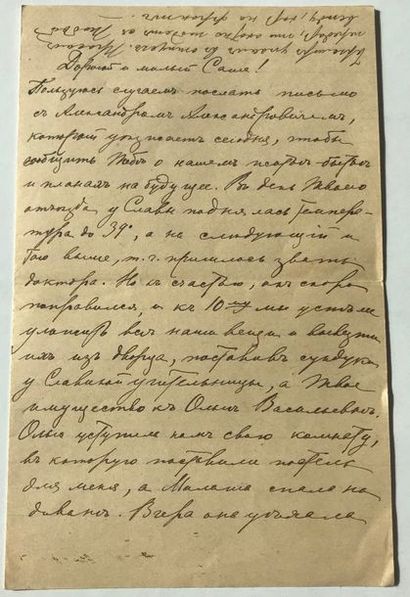 Дорогой и милый Саша!
Пользуюсь случаемъ послать письмо
съ Александромъ Александровичемъ,
который уѣзжаетъ сегодня, чтобы
сообщить Тебѣ о нашемъ
и планахъ на будущее. Въ день Твоего
отъѣзда у Славы поднялась темпера-
тура до 39°, а на слѣдующій и
того выше, т. ч. пришлось звать
доктора. Но къ счастью, онъ скоро
поправился, и къ 10му мы успѣли
уложить всѣ наши вещи и вывезти
ихъ изъ дворца, поставивъ сундуки
у Славиной учительницы, а Твое
имущество къ Ольгѣ Васильевнѣ.
Ольга уступила намъ свою комнату,
въ которую поставили постель
для меня, а Милаша спала на
диванѣ. Вчера она уѣхала